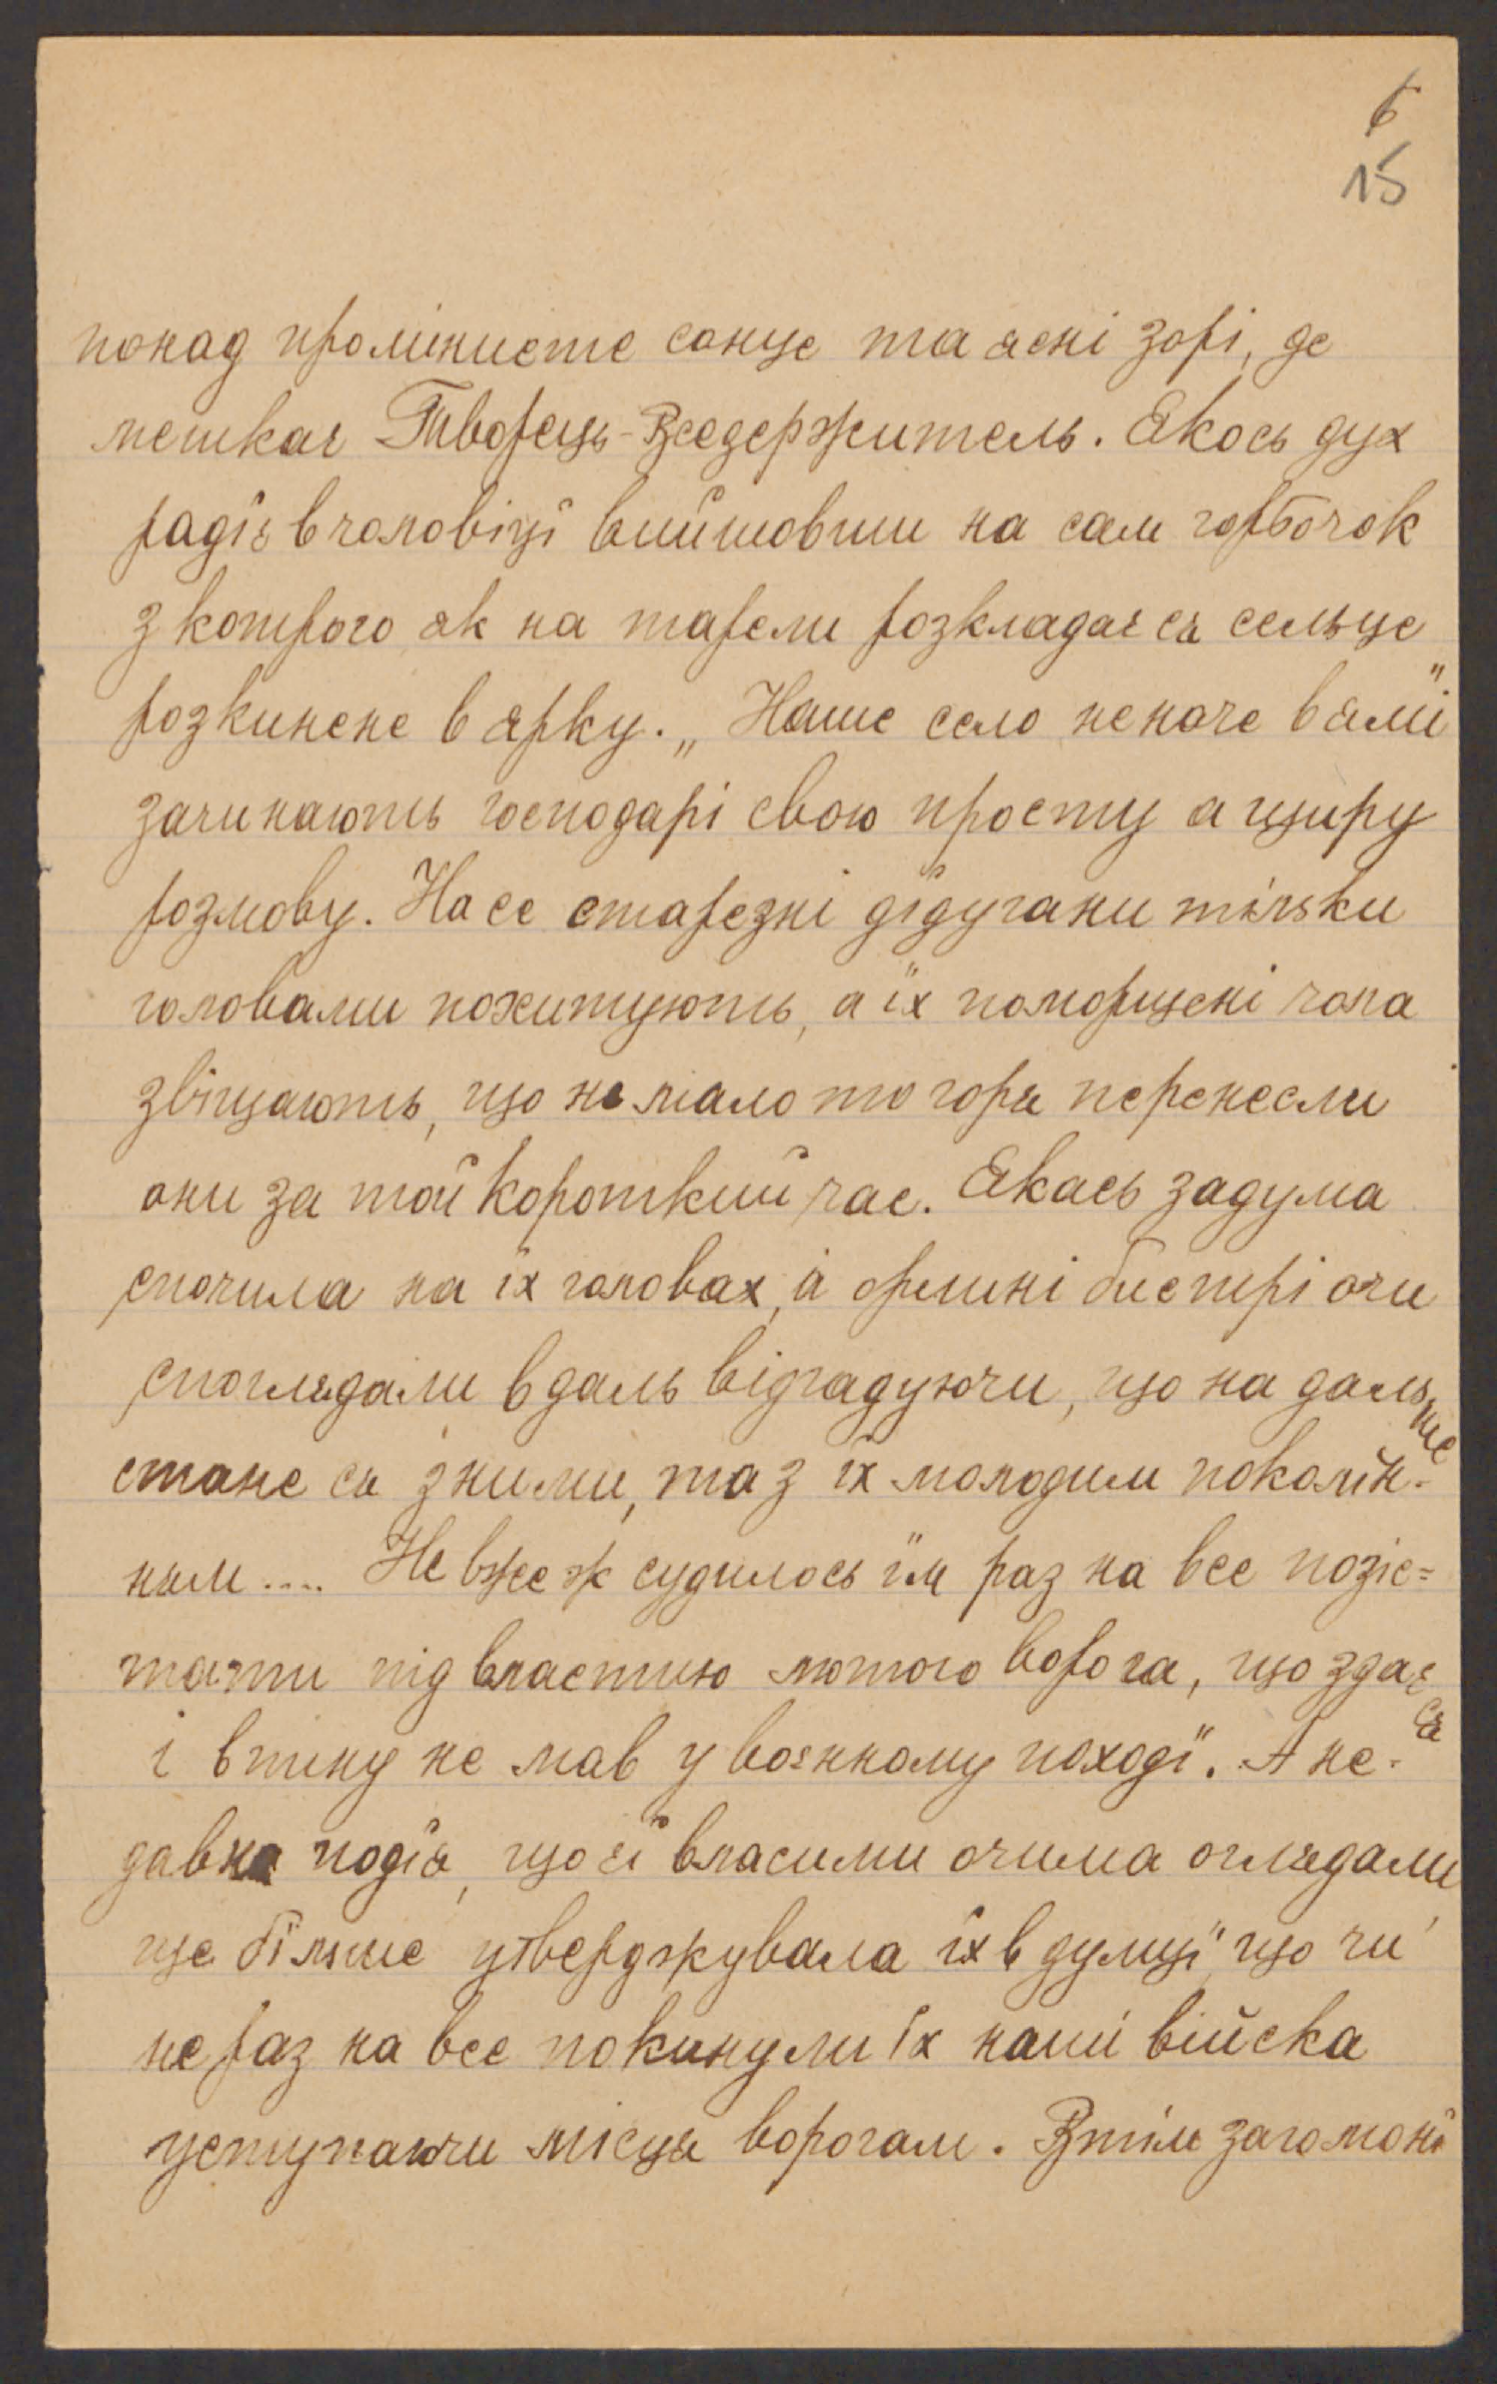 6
15
понад проміннсте сонце та ясні зорі, де
мешкає Творець-Вседержитель. Якось дух
радіє в чоловіці вийшовши на сам горбочок
з котрого як на тарели розкладає ся сельце
розкинене в ярку. „Наше село неначе в ямі"
зачинають господарі свою просту а щиру
розмову. На се старезні дідугани тілько
головами похитують, а їх поморщені чола
звіщають, що не мало то горя перенесли
они за той короткий час. Якась задума
спочила на їх головах, а орлині бистрі очи
споглядали в даль відгадуючи, що на дальше
стане ся з ними, та з їх молодим поколін-
ням .... Не вже ж судилось їм раз на все позіс=
тати під властию лютого ворога, що здає ся
і впину не мав у воєнному походї. А не-
давна подїя, що єї власими очима оглядали
ще більше утверджувала їх в думцї що чи
не раз на все покинули їх наші війска
уступаючи місця ворогам. Втім загомонї